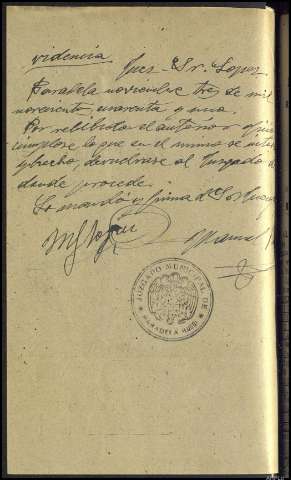 videncia. Juez Sr. Lopez
Paradela noviembre tres de mil
novecientos cuarenta y uno.
Por recibido el anterior
cumplase lo que en el mismo se
y hecho, devuelvase al Juzgado
donde procede.
Lo mandó y firma el Sr Juez
JUZGADO MUNICIPAL DE
PARADELA